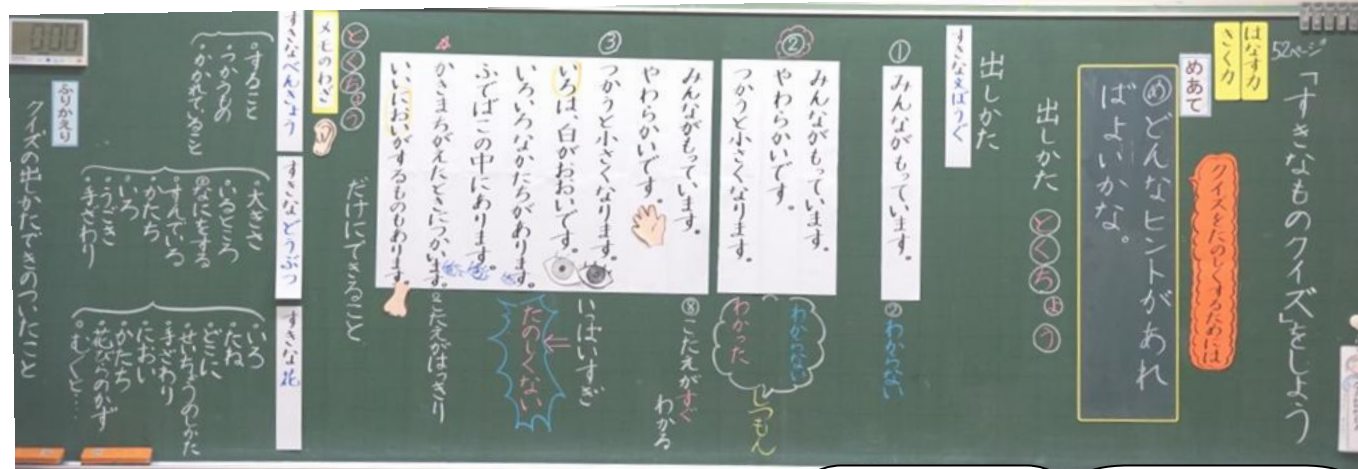 52ページ
「すきなものクイズ」をしよう
はなす力
きく力
クイズをたのしくするためには
めあて
めどんなヒントがあれ
ばよいかな。
出しかた とくちょう
出しかた
すきなえばうぐ
①
みんながもっています。
わからない
②
みんながもっています。
やわらかいです。
つかうと小さくなります。
わからない
わかった
しつもん
③
みんながもっています。
やわらかいです。
つかうと小さくなります。
いろは、白がおおいです。
いろいろなかたちがあります。
ふでばこの中にあります。
かきまちがえたときにつかいます。
いいにおいがするものもあります。
こたえがすぐ
わかる
いっぱいすぎ
たのしくない
こたえはっきり
とくちょう
だけにできること
メモのわざ
すきなべんきょう
すきなどうぶつ
すきな花
すること
つかうもの
かかれていること
大きさ
いるところ
なにをする
すんでいる
かたち
いろ
うごき
手ざわり
いろ
たね
どこに
せいちょうのしかた
手ざわり
におい
かたち
花びらのかず
ふりかえり
クイズの出しかたできのついたこと